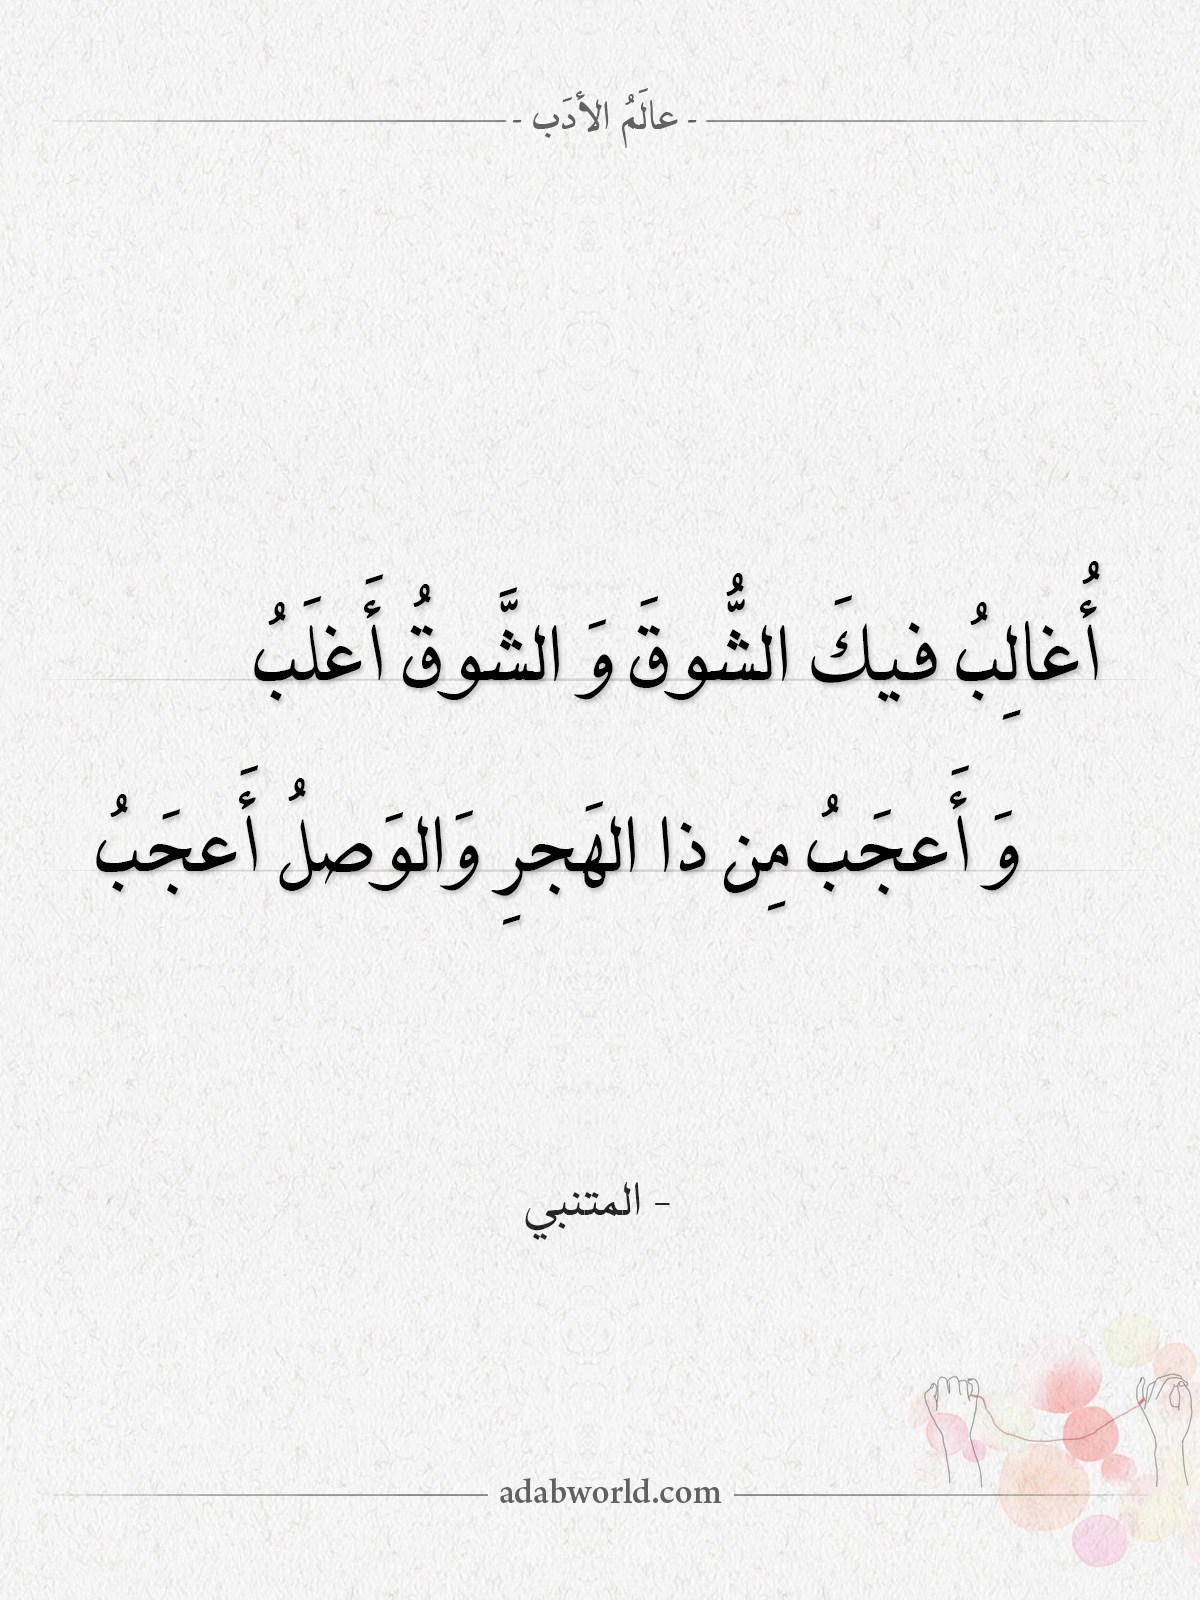 - عالَمُ الأدَب -
أُغالِبُ فيكَ الشُّوقَ وَ الشَّوقُ أَغلَبُ
وَ أَعجَبُ مِن ذا الهَجرِ وَالوَصلُ أَعجَبُ
- المتنبي
adabworld.com